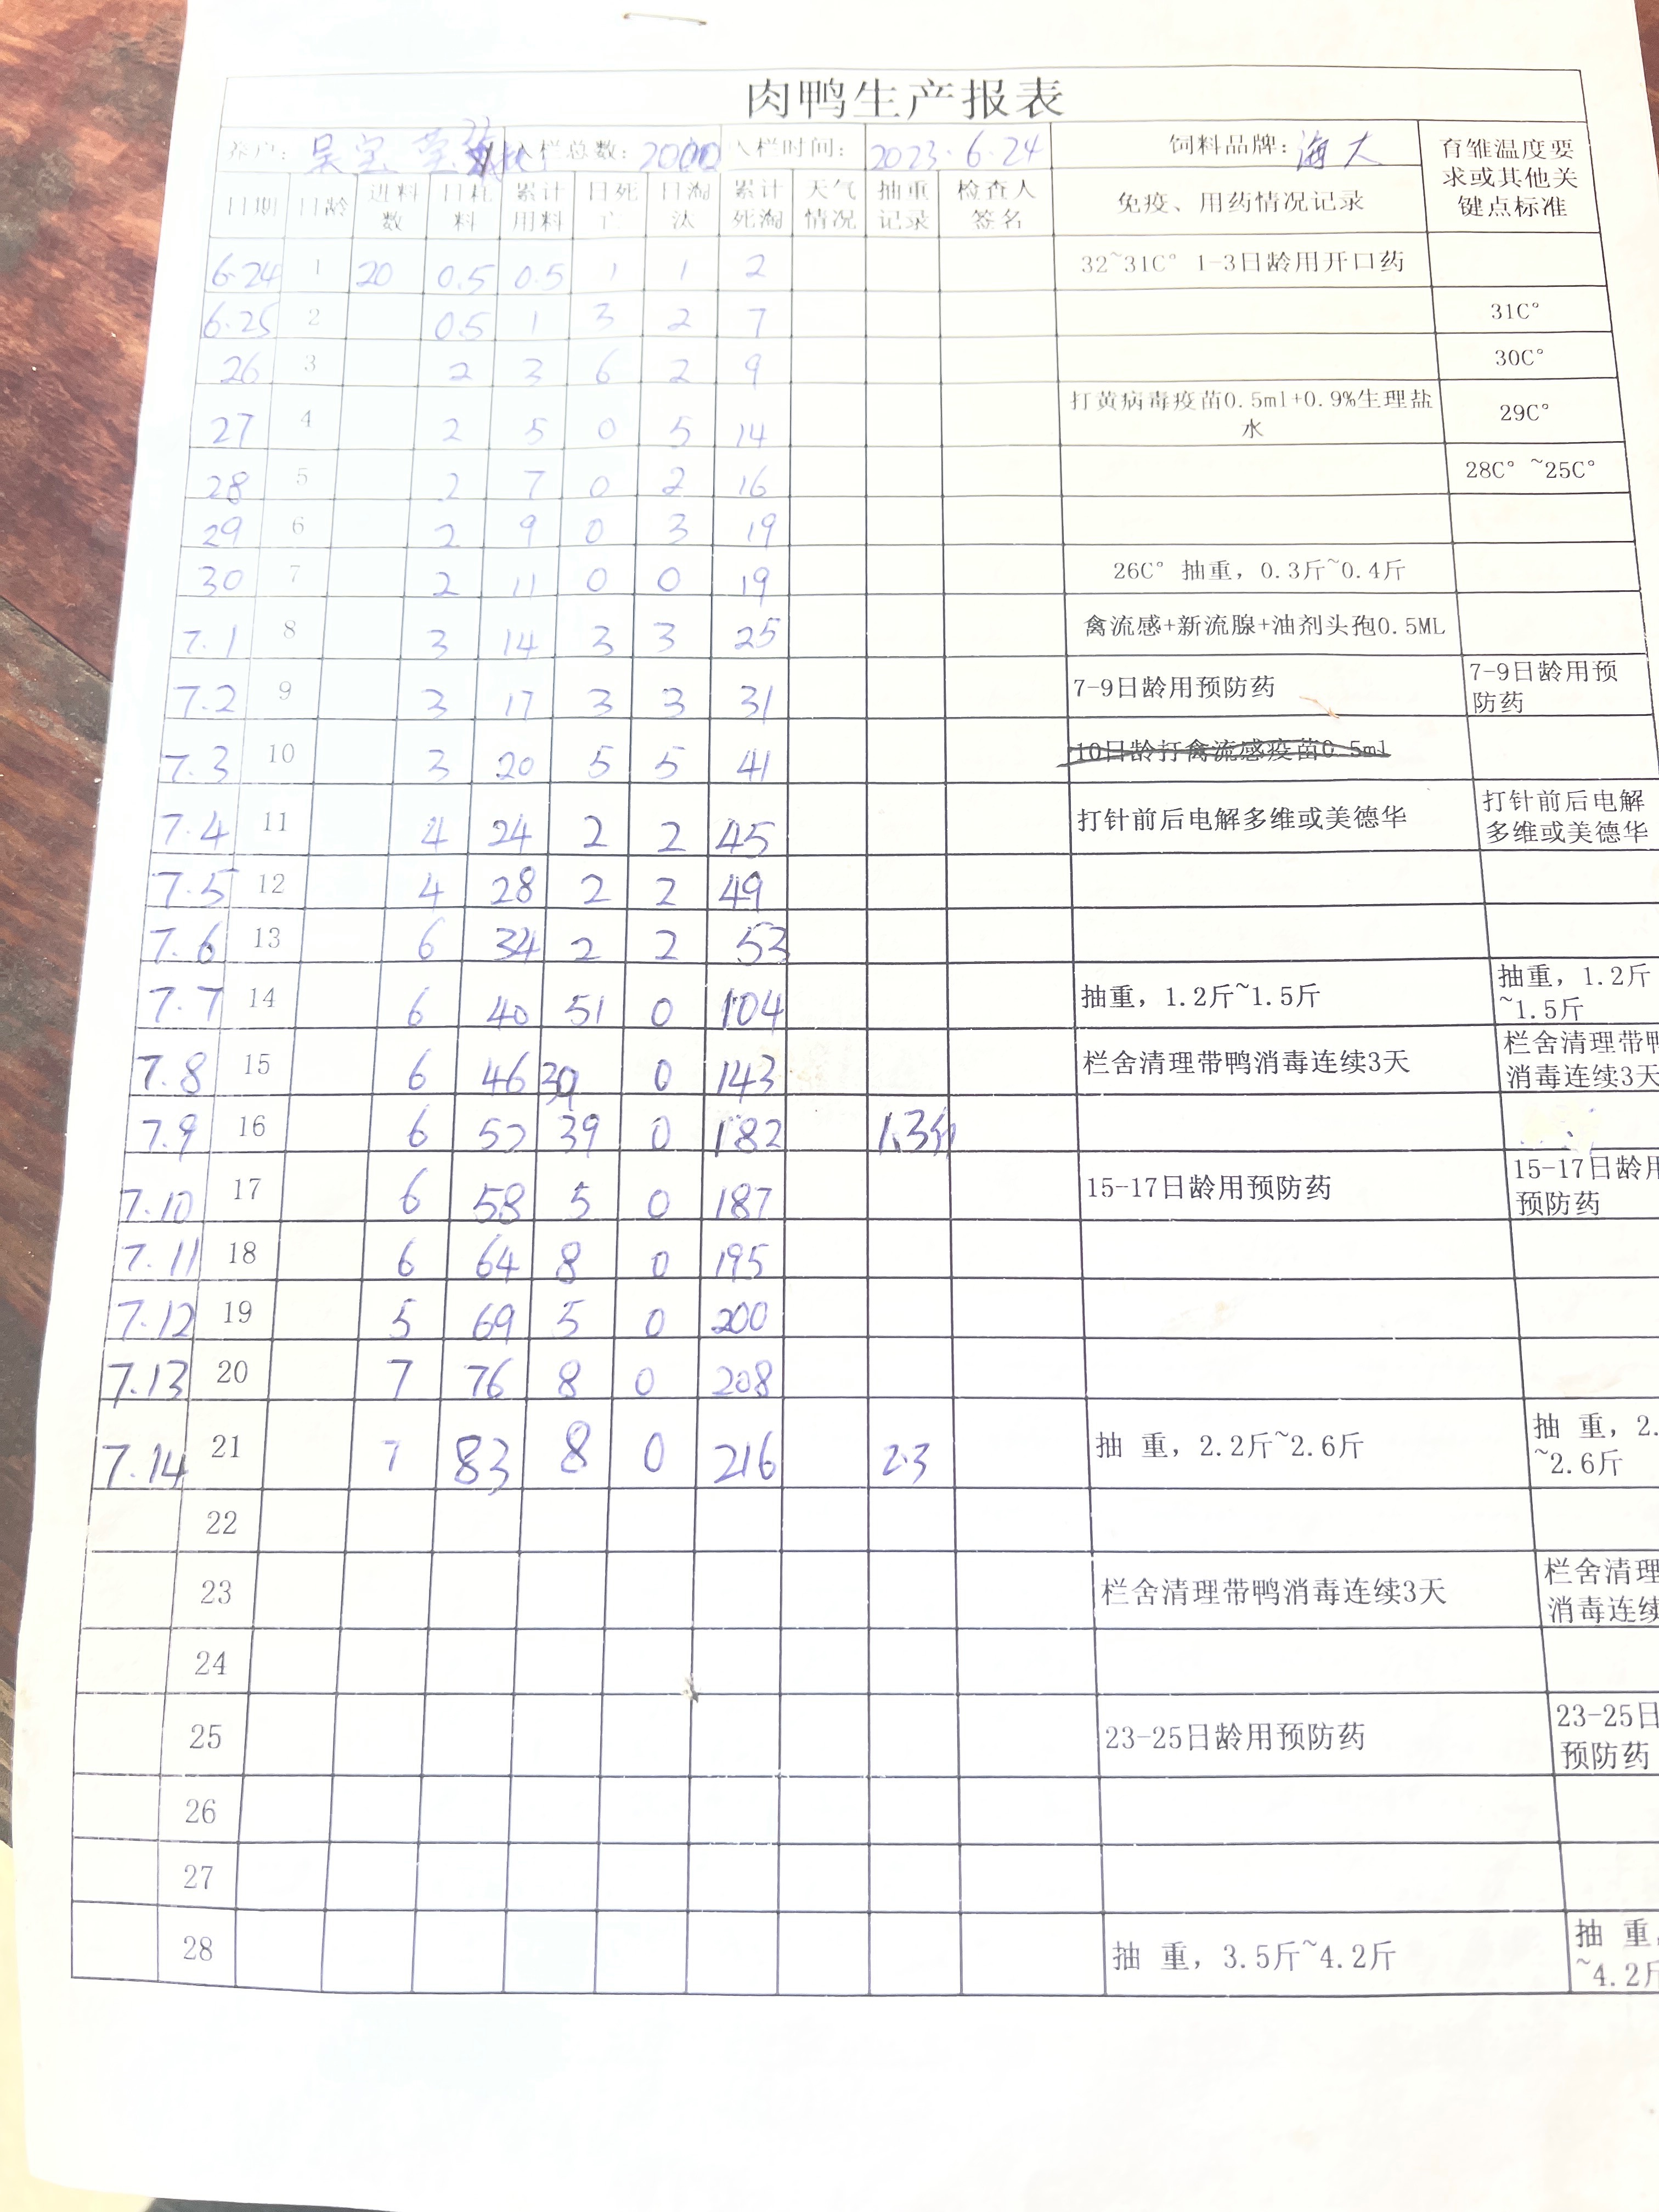 肉鸭生产报表
养户: 吴宝 入栏总数: 2000 入栏时间: 2023.6.24 饲料品牌: 海大 育雏温度要求或其他关键点标准
日期 日龄 进料数 日耗料 累计用料 日死亡 日淘汰 累计死淘 天气情况 抽重记录 检查人签名 免疫、用药情况记录
6.24 1 20 0.5 0.5 1 1 2 32~31C° 1-3日龄用开口药
6.25 2 0.5 1 3 2 7 31C°
26 3 2 3 6 2 9 30C°
27 4 2 5 0 5 14 打黄病毒疫苗0.5ml+0.9%生理盐水 29C°
28 5 2 7 0 2 16 28C° ~25C°
29 6 2 9 0 3 19
30 7 2 11 0 0 19 26C° 抽重，0.3斤~0.4斤
7.1 8 3 14 3 3 25 禽流感+新流腺+油剂头孢0.5ML
7.2 9 3 17 3 3 31 7-9日龄用预防药 7-9日龄用预防药
7.3 10 3 20 5 5 41 10日龄打禽流感疫苗0.5ml
7.4 11 4 24 2 2 45 打针前后电解多维或美德华 打针前后电解多维或美德华
7.5 12 4 28 2 2 49
7.6 13 6 34 2 2 53
7.7 14 6 40 51 0 104 抽重，1.2斤~1.5斤 抽重，1.2斤~1.5斤
7.8 15 6 46 39 0 143 栏舍清理带鸭消毒连续3天 栏舍清理带鸭消毒连续3天
7.9 16 6 52 39 0 182 1.3斤
7.10 17 6 58 5 0 187 15-17日龄用预防药 15-17日龄用预防药
7.11 18 6 64 8 0 195
7.12 19 5 69 5 0 200
7.13 20 7 76 8 0 208
7.14 21 7 83 8 0 216 2.3 抽 重，2.2斤~2.6斤 抽 重，2.~2.6斤
22
23 栏舍清理带鸭消毒连续3天 栏舍清理消毒连续
24
25 23-25日龄用预防药 23-25日预防药
26
27
28 抽 重，3.5斤~4.2斤 抽 重，~4.2斤